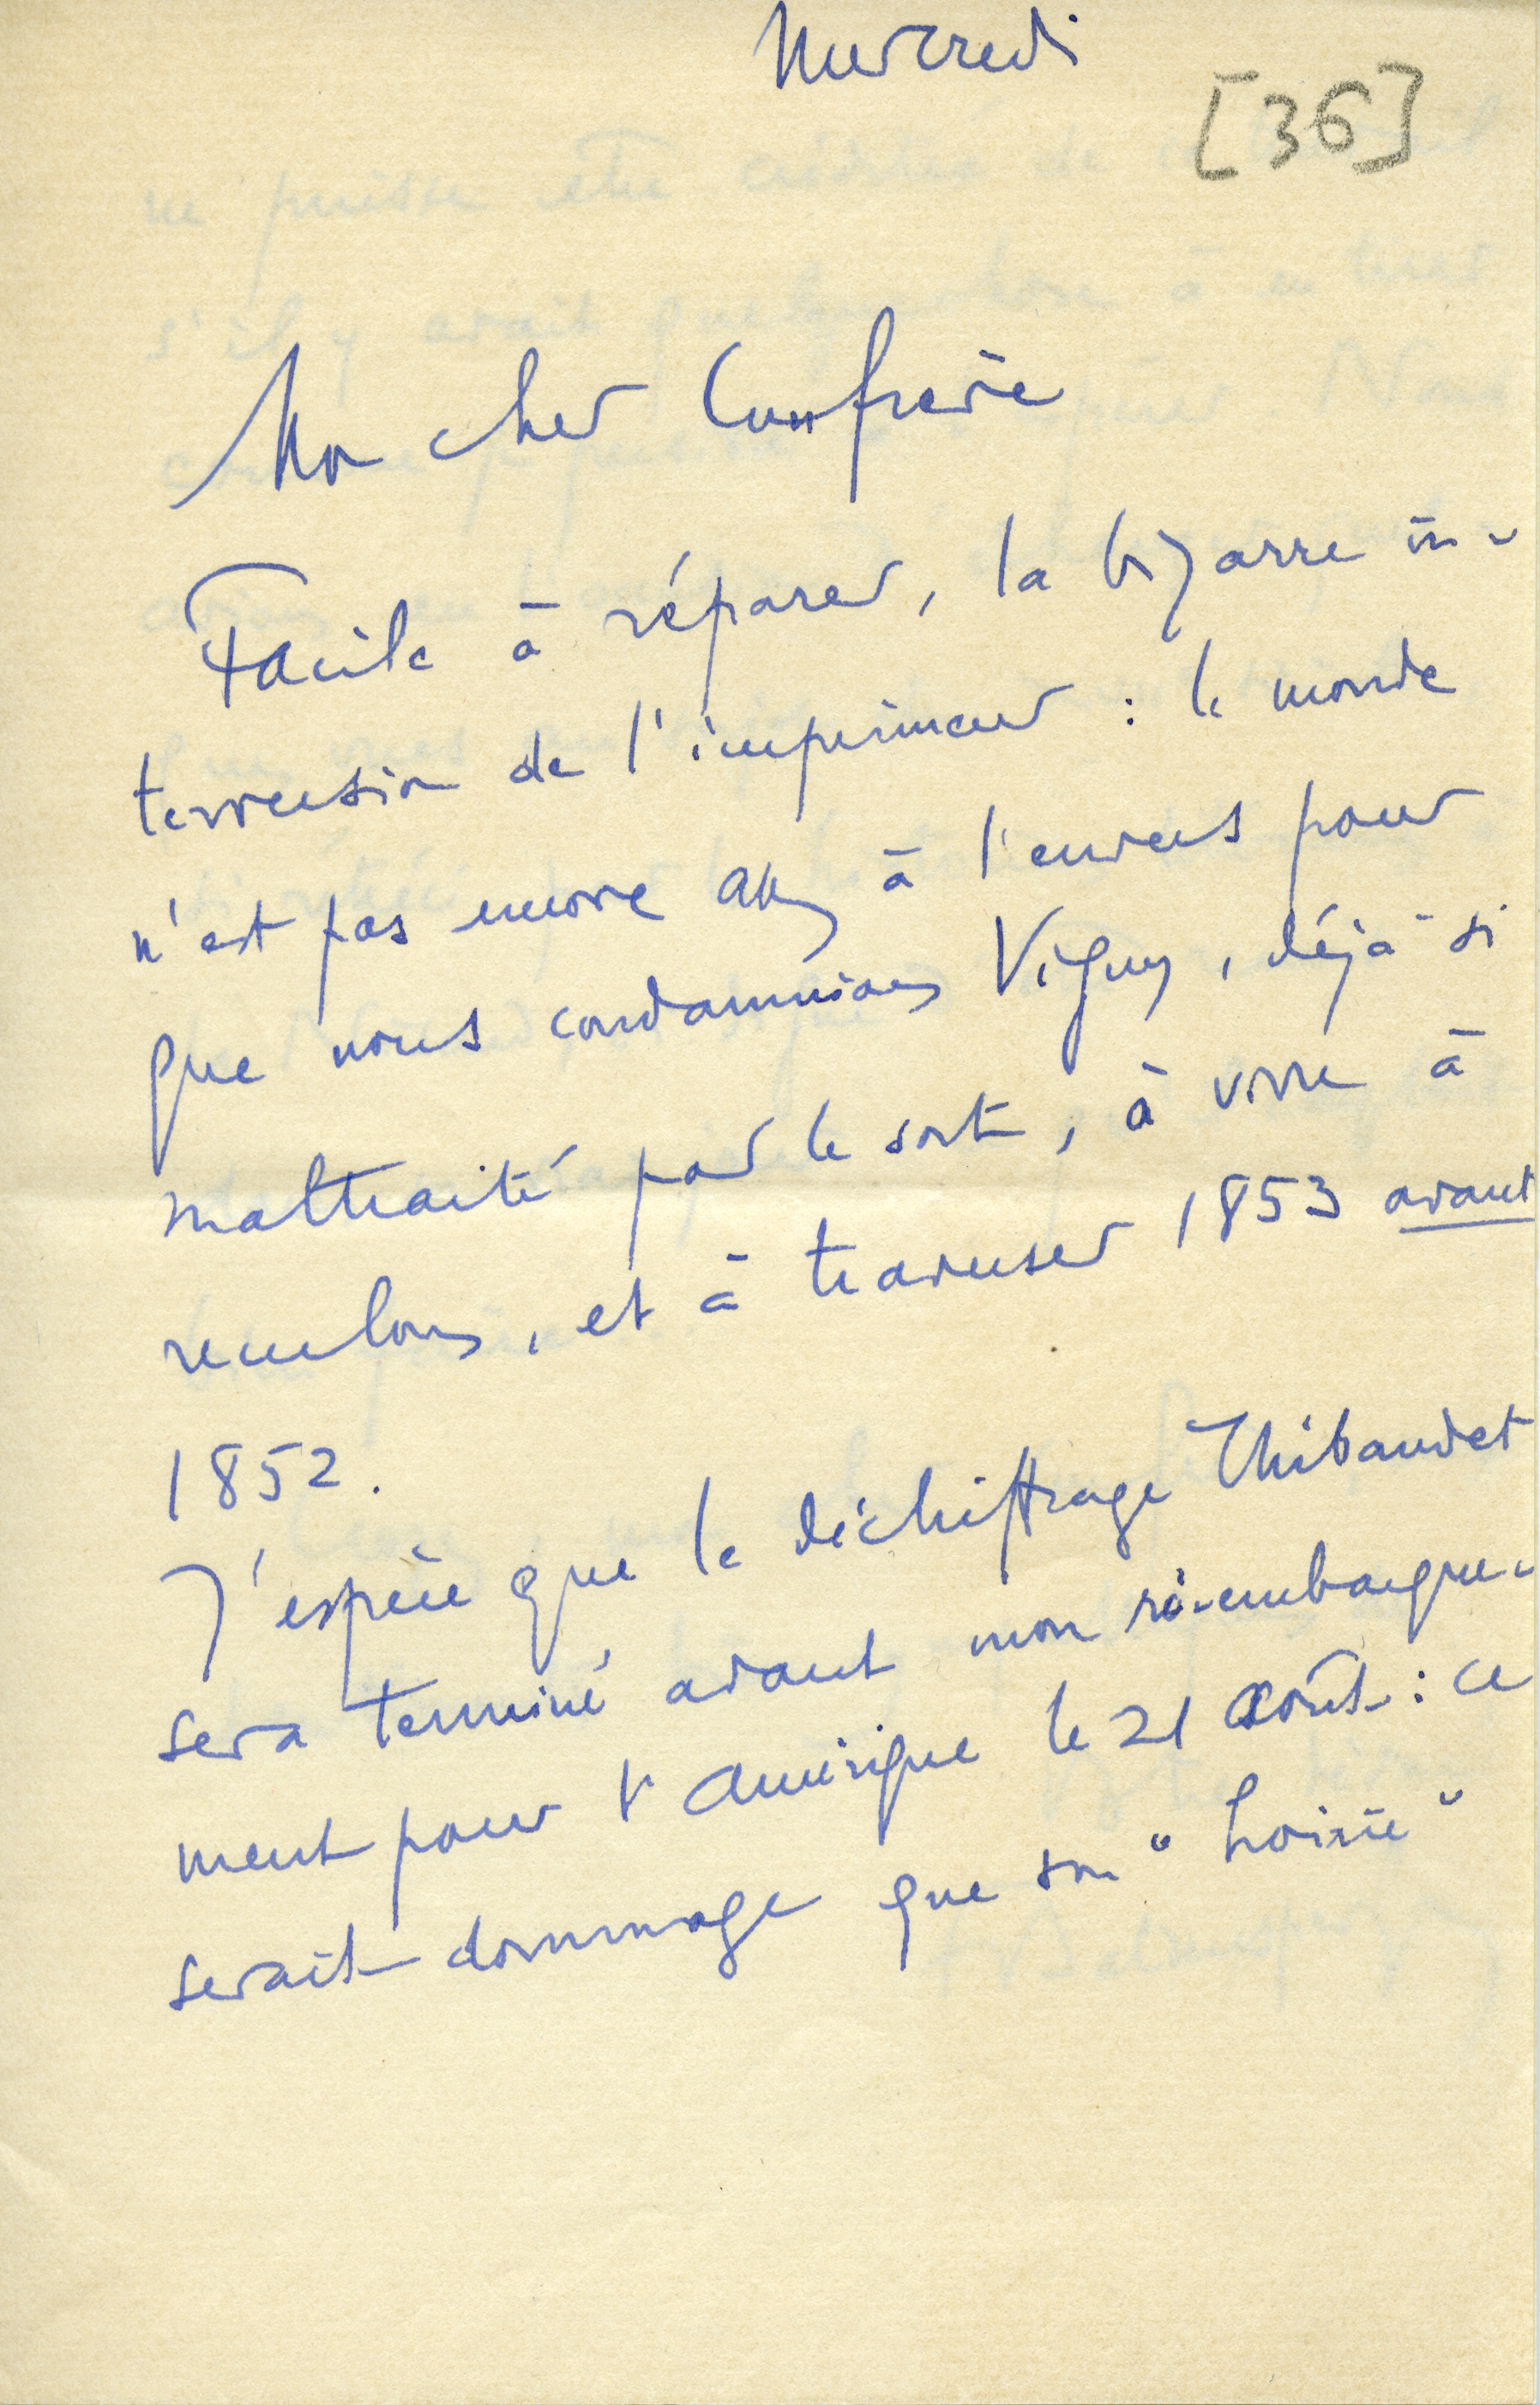 Mercredi
[36]
Mon cher Confrère
Facile à réparer, la bizarre in-
terversion de l'imprimeur : le monde
n'est pas encore assez à l'envers pour
que nous condamnions Vigny, déjà si
maltraité par le sort, à vivre à
reculons, et à traverser 1853 avant
1852.
J'espère que le déchiffrage Thibaudet
sera terminé avant mon ré-embarque-
ment pour l'Amérique le 21 août : ce
serait dommage que son "hoirie"